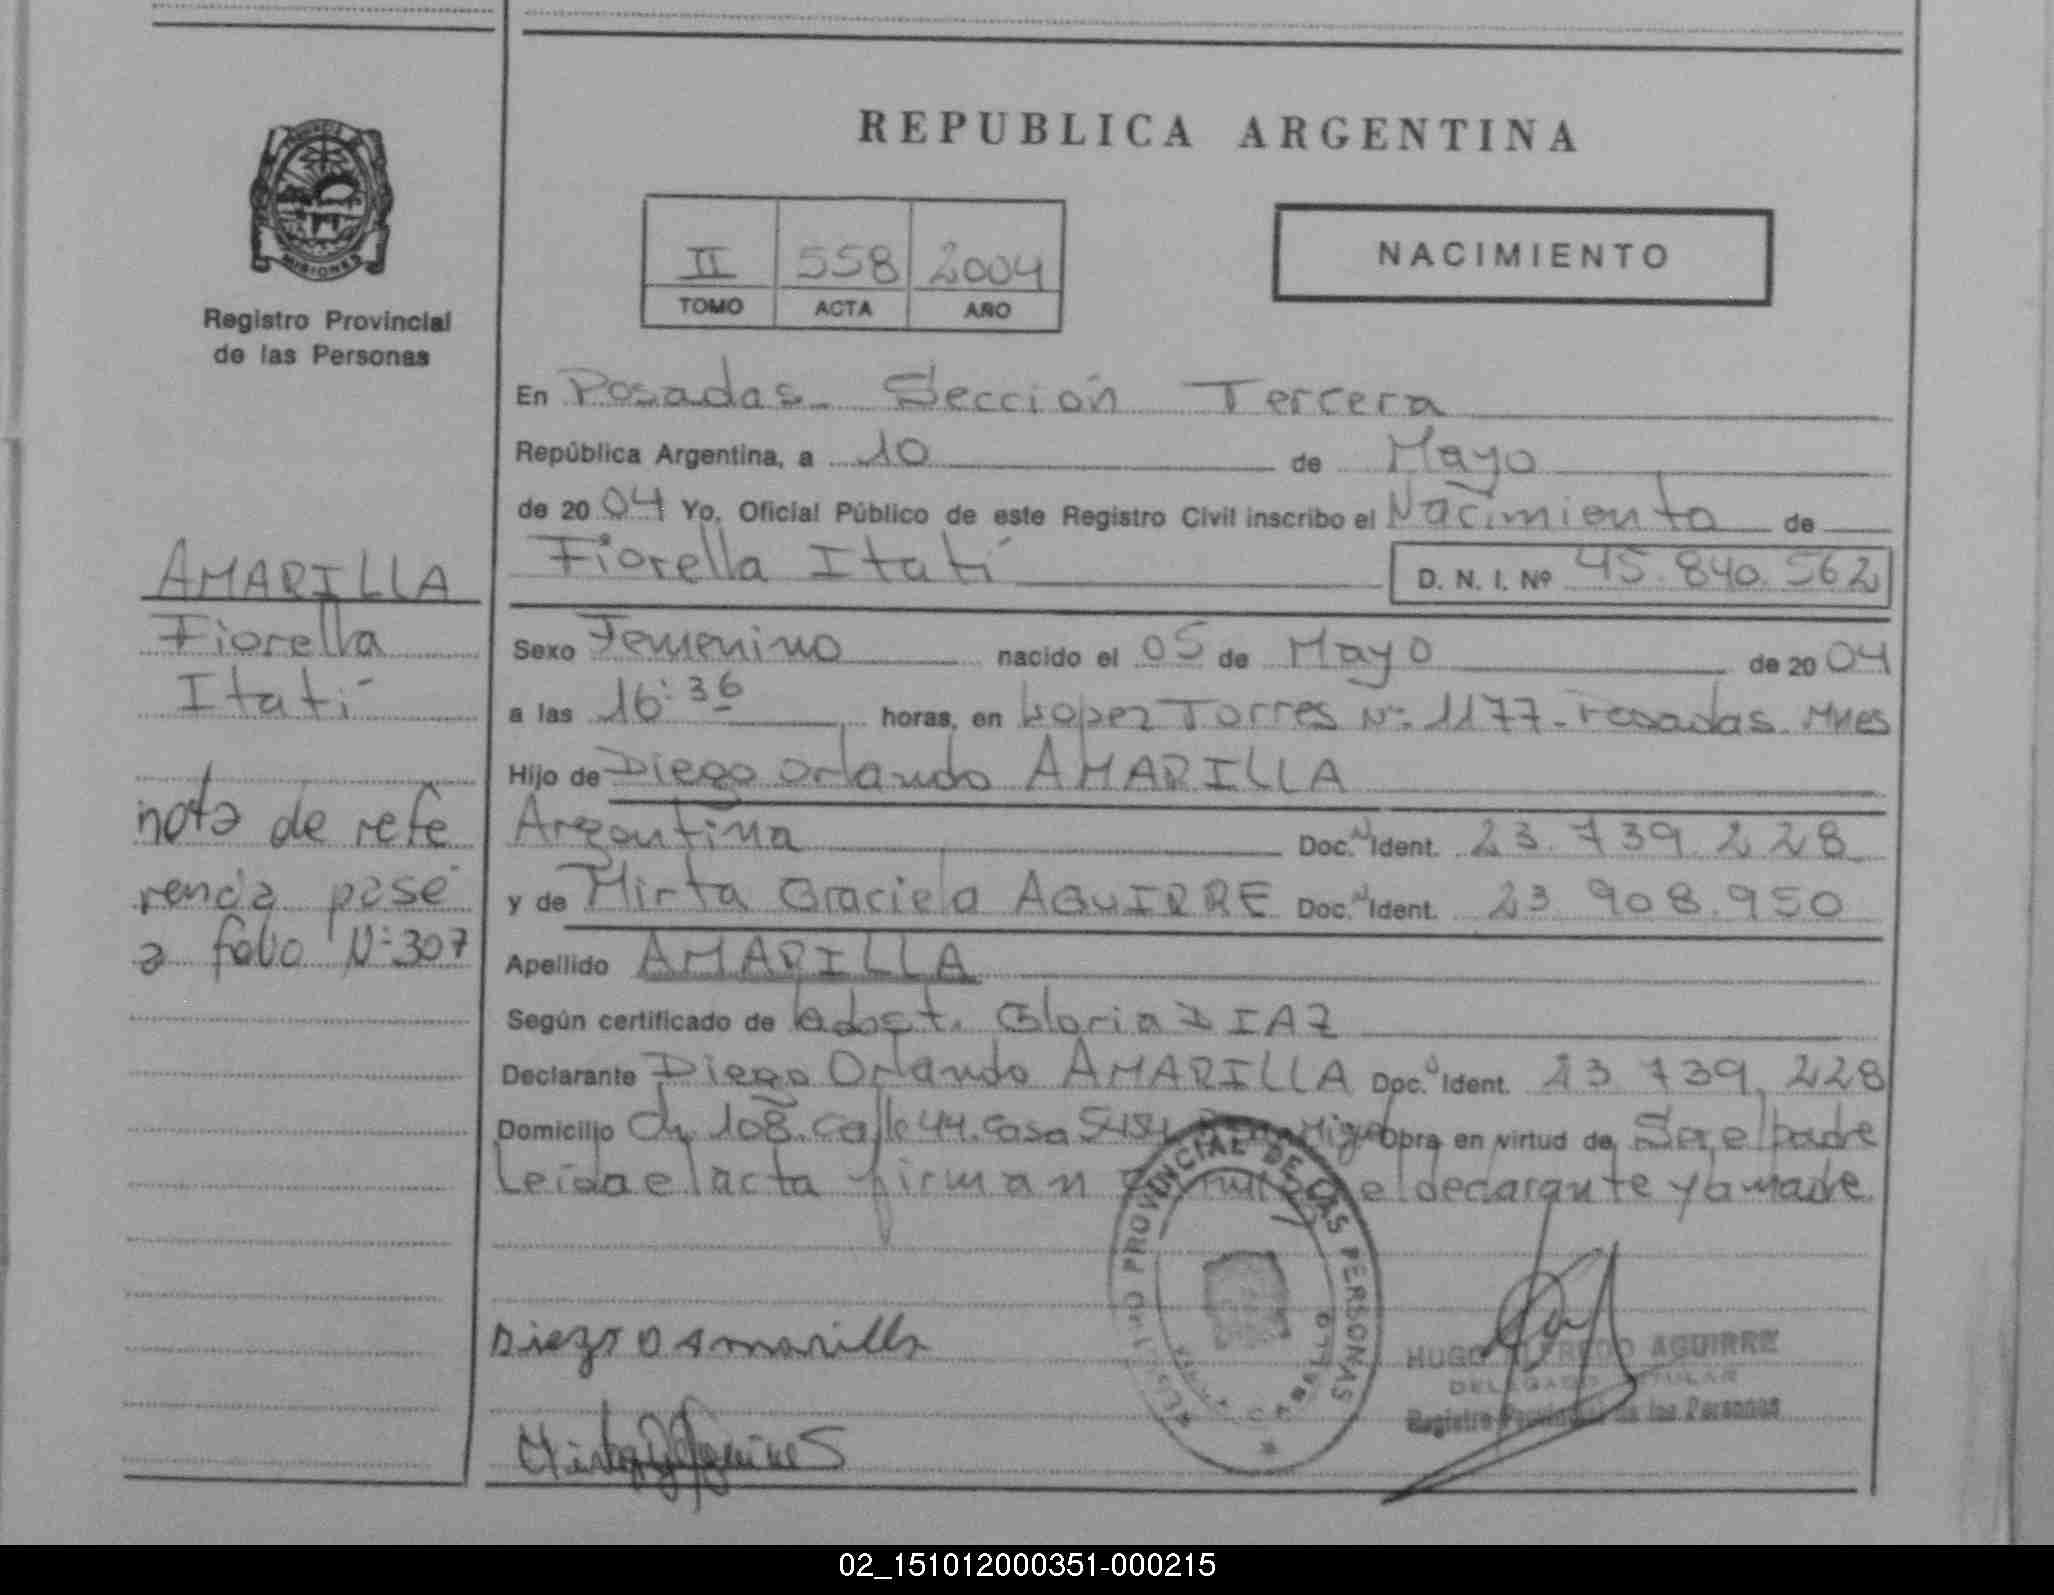 REPUBLICA ARGENTINA
MISIONES
Registro Provincial
de las Personas
II 558 2004
TOMO ACTA AÑO
NACIMIENTO
En Posadas - Sección Tercera
República Argentina, a 10 de Mayo
de 2004 Yo, Oficial Público de este Registro Civil inscribo el Nacimiento de
Fiorella Itatí D. N. I. Nº 45.840.562
Sexo Femenino nacido el 05 de Mayo de 2004
a las 16:36 horas, en Lopez Torres Nº 1177 - Posadas Mnes
Hijo de Diego Orlando AMARILLA
Argentina Doc. N Ident. 23.739.228
y de Mirta Graciela AGUIRRE Doc. N Ident. 23.908.950
Apellido AMARILLA
Según certificado de Obst. Gloria DIAZ
Declarante Diego Orlando AMARILLA Doc. N Ident. 23.739.228
Domicilio Ch 108. Calle 44. Casa Obra en virtud de Ser el padre
Leida el acta firman el declarante y la madre
AMARILLA
Fiorella
Itatí
nota de refe
rencia pase
a folio Nº 307
Diego O Amarilla
PROVINCIAL DE LAS PERSONAS
HUGO ALFREDO AGUIRRE
DELEGADO TITULAR
Registro Provincial de las Personas
02_151012000351-000215